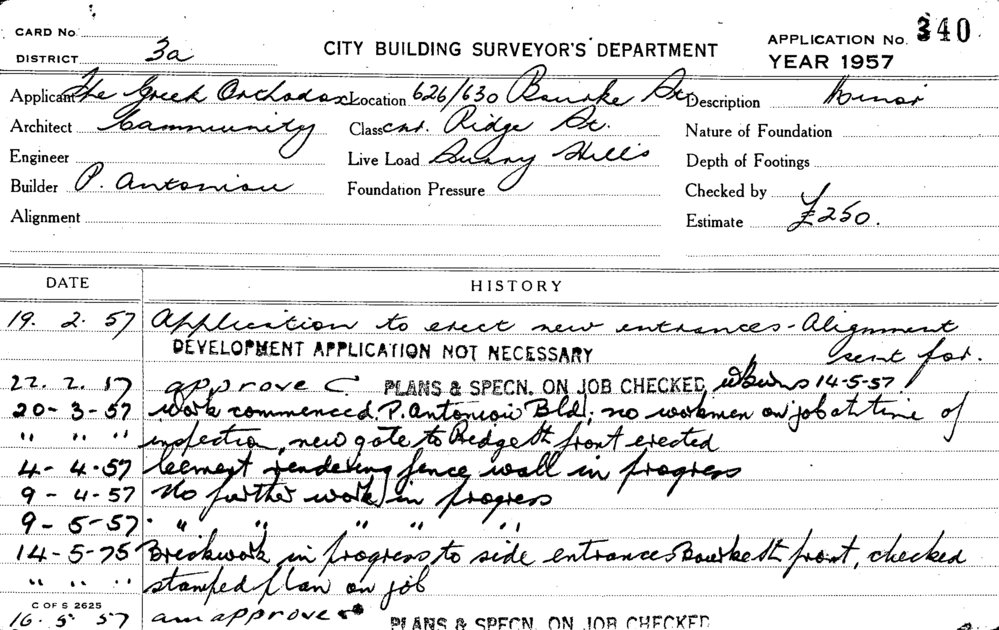 CARD No.
DISTRICT 3a
CITY BUILDING SURVEYOR'S DEPARTMENT
APPLICATION No. 340
YEAR 1957
Applicant The Greek Orthodox Location 626/630 Bourke St. Description Minor
Architect Community Class cnr. Ridge St. Nature of Foundation
Engineer Live Load Surry Hills Depth of Footings
Builder P. Antoniou Foundation Pressure Checked by
Alignment Estimate £250.
DATE HISTORY
19. 2. 57 Application to erect new entrances - Alignment
DEVELOPMENT APPLICATION NOT NECESSARY sent for.
22. 2. 57 approve C PLANS & SPECN. ON JOB CHECKED 14-5-57
20-3-57 Work commenced. P. Antoniou Bld. no workmen on job at time of
" " " inspection, new gate to Ridge St front erected
4-4-57 Cement rendering fence wall in progress
9-4-57 No further work in progress
9-5-57 " " " " "
14-5-75 Brickwork in progress to side entrance Bourke St front, checked
" " " stamped plan on job
C OF S 2625
16. 5 57 am approve PLANS & SPECN. ON JOB CHECKED